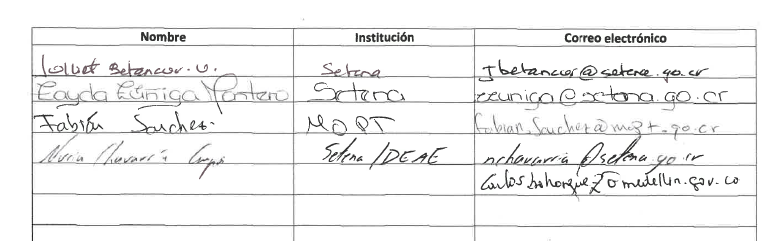 Nombre Institución Correo electrónico
Betancur. U. Setena Jbetancur@setena.go.cr
Zayda Zúñiga Montero Setena zzuniga@setena.go.cr
Fabián Sanchez. MOPT fabian.sanchez@mopt.go.cr
Nuria Chavarría Campos Setena/DEAE nchavarria@setena.go.cr